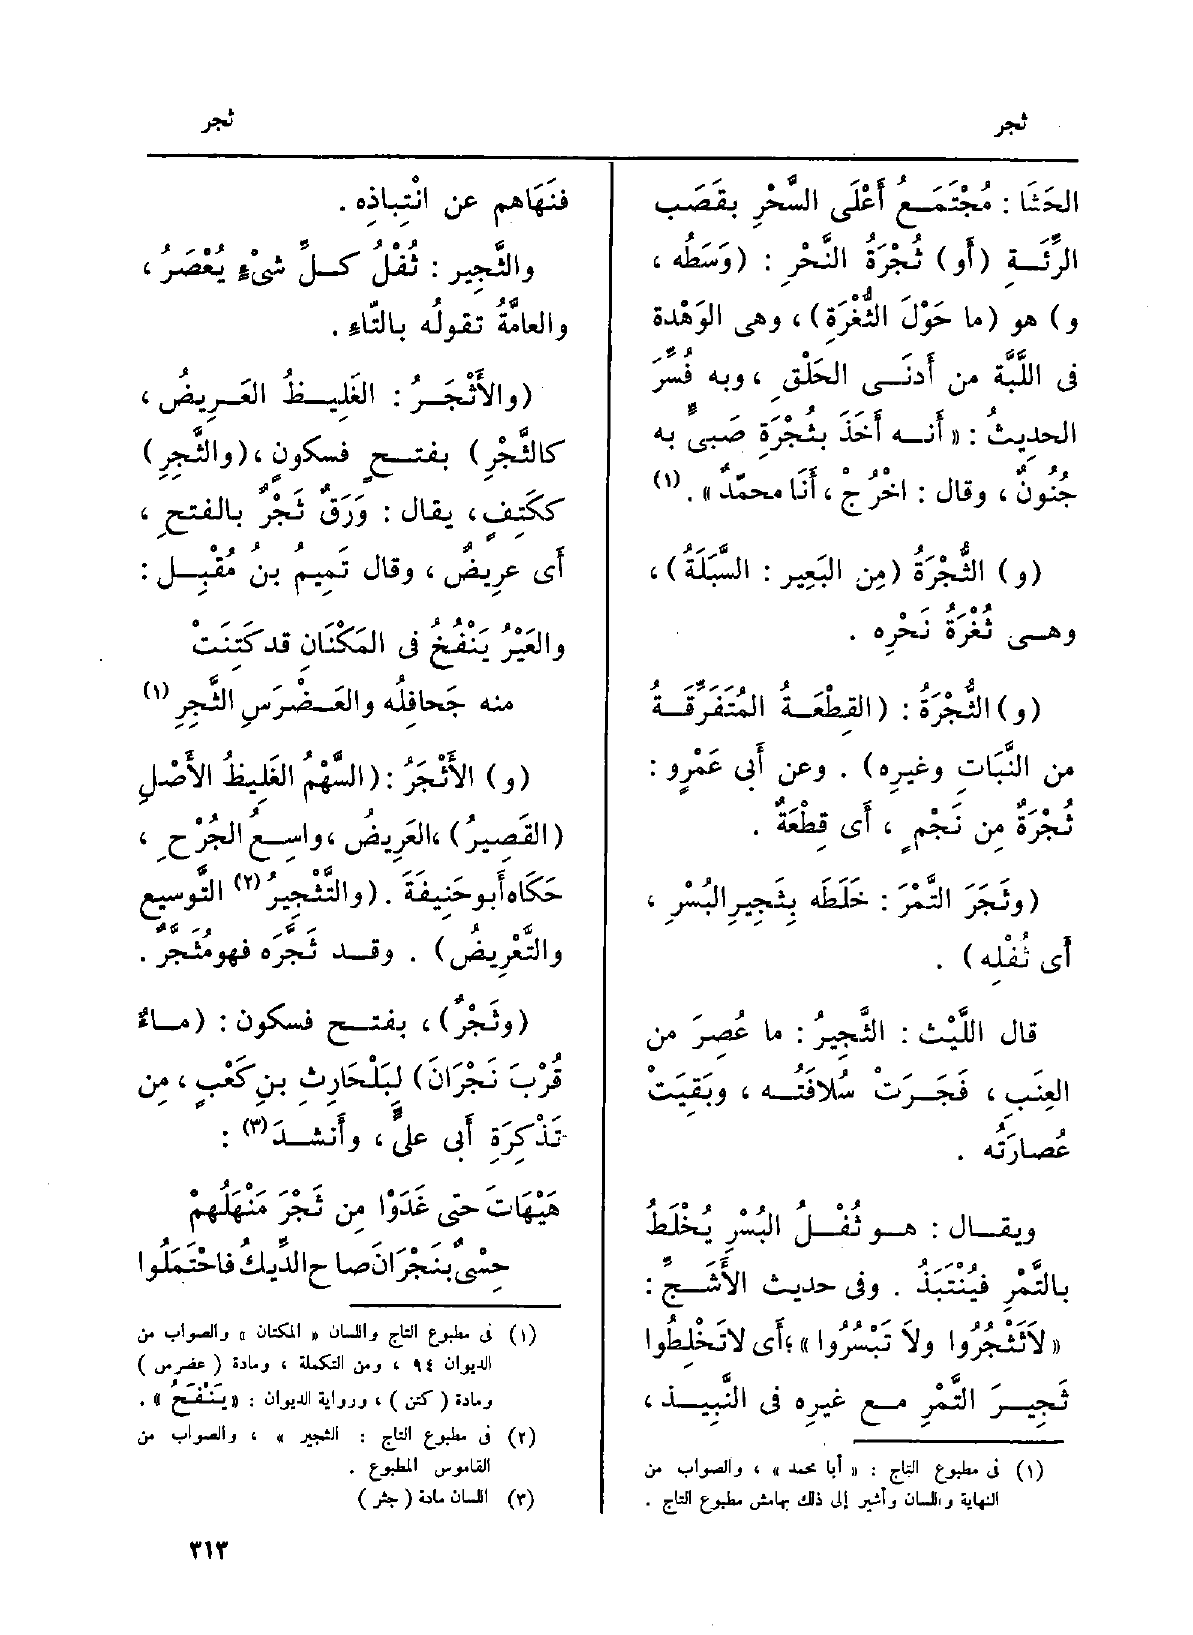 ثجر
ثجر
الحَثَا : مُجْتَمَــعُ أَعْلَى السَّحْرِ بقَصَب
الرِّئَــةِ (أَو) ثُجْرَةُ النَّحْرِ : (وَسَطُه ،
و) هو (ما حَوْلَ الثُّغْرَةِ)، وهى الوَهْدة
فى اللَّبَّة من أَدنَــى الحَلْقِ ، وبه فُسِّرَ
الحديثُ : «أَنــه أَخَذَ بثُجْرَةِ صَبىٍّ به
جُنُونٌ ، وقال : اخْرُجْ ، أَنَا محمّدٌ». (١)
(و) الثُّجْرَةُ (مِن البَعِير : السَّبَلَةُ) ،
وهــى ثُغْرَةُ نَحْرِه .
(و) الثُّجْرَةُ : (القِطْعَــةُ المُتَفَرِّقَــةُ
من النَّبَاتِ وغيرِه) . وعن أَبى عَمْرٍو :
ثُجْرَةٌ مِن نَجْمٍ ، أَى قِطْعَةٌ .
(وثَجَرَ التَّمْرَ : خَلَطَه بِثَجِيرِ البُسْرِ ،
أَى ثُفْلِه) .
قال اللَّيْث : الثَّجِيرُ : ما عُصِرَ من
العِنَبِ ، فَجَــرَتْ سُلَافَتُــه ، وبَقِيَتْ
عُصارَتُه .
ويقــال : هــو ثُفْــلُ البُسْرِ يُخْلَطُ
بالتَّمْرِ فيُنْتَبَذُ . وفى حديث الأَشَــجِّ :
«لَا تَثْجُرُوا ولَا تَبْسُرُوا» ؛ أَى لا تَخْلِطُوا
ثَجِيــرَ التَّمْرِ مــع غيرِه فى النَّبِيــذ ،
(١) فى مطبوع التاج : « أبا محمد » ، والصواب من
النهاية واللسان وأشير إلى ذلك بهامش مطبوع التاج .
فنَهَاهم عن انْتِباذِه .
والثَّجِير : ثُفْلُ كــلِّ شىْءٍ يُعْصَرُ ،
والعامَّةُ تقولُه بالتّاءِ .
(والأَثْجَــرُ : الغَلِيــظُ العَــرِيضُ ،
كالثَّجْرِ) بفتــحٍ فسكونٍ ، (والثَّجِرِ)
ككَتِفٍ ، يقال : وَرَقٌ ثَجْرٌ بالفتحِ ،
أَى عرِيضٌ ، وقال تَمِيمُ بنُ مُقْبِــل :
والعَيْرُ يَنْفُخُ فى المَكْنَانِ قد كَتِنَتْ
منه جَحافِلُه والعَــضْرَسِ الثَّجِرِ (١)
(و) الأَثْجَرُ : (السَّهْمُ الغَلِيظُ الأَصْلِ
(القَصِيرُ) ،العَرِيضُ ،واسِــعُ الجُرْحِ ،
حَكَاه أَبو حَنِيفَةَ . (والتَّثْجِيرُ (٢) التَّوسِيع
والتَّعْرِيضُ) . وقــد ثَجَّرَه فهو مُثَجَّرٌ .
(وثَجْرٌ) ، بفتــح فسكون : (مــاءٌ
قُرْبَ نَجْرَانَ) لبَلْحَارِثِ بنِ كَعْبٍ ، مِن
تَذْكِرَةِ أَبى علىٍّ ، وأَنشــدَ (٣) :
هَيْهَاتَ حتى غَدَوْا مِن ثَجْرَ مَنْهَلُهمْ
حِسْىٌ بنَجْرَانَ صاحَ الدِّيكُ فاحْتَمَلُوا
(١) فى مطبوع التاج واللسان « المكتان » والصواب من
الديوان ٩٤ ، ومن التكملة ، ومادة ( عضرس )
ومادة ( كتن ) ، ورواية الديوان : «يَنْفَحُ» .
(٢) فى مطبوع التاج : الثجير » ، والصواب من
القاموس المطبوع .
(٣) اللسان مادة ( جثر )
٣١٣